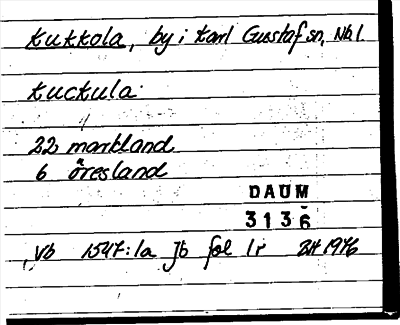 Kukkola, by i Karl Gustaf sn, Nbl
Kuckula
22 markland
6 öresland
DAUM
3136
Vb 1547:1a Jb fol 1r 1976